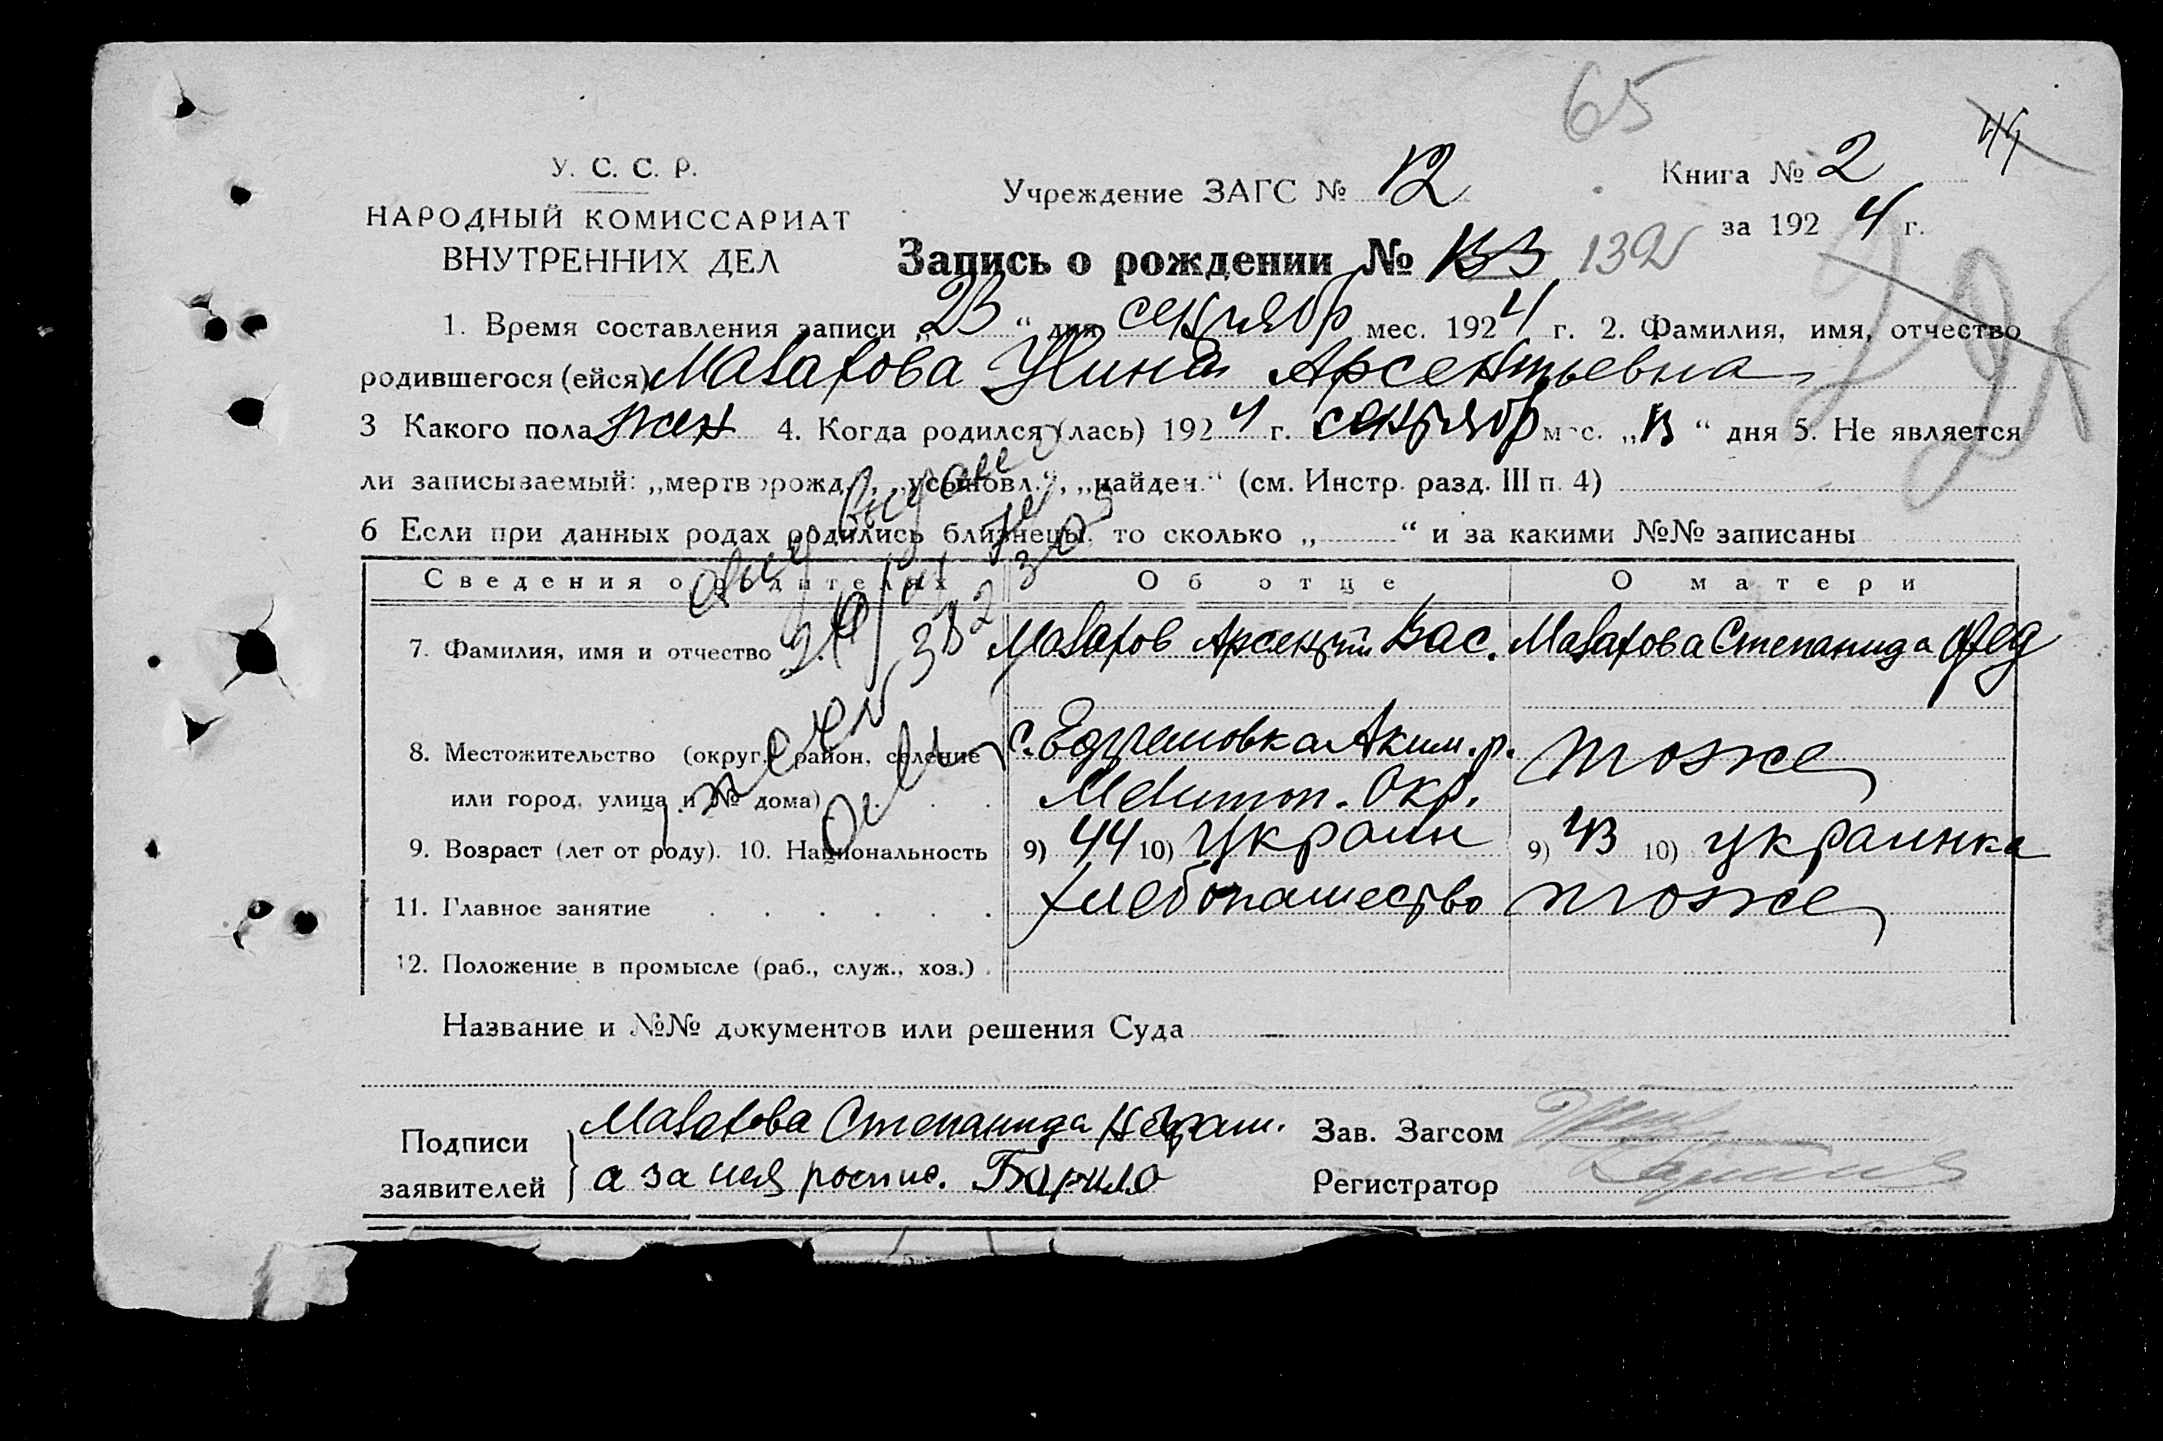 65
44
У. С. С. Р.
НАРОДНЫЙ КОМИССАРИАТ
ВНУТРЕННИХ ДЕЛ
Учреждение ЗАГС № 12
Книга № 2
за 1924 г.
Запись о рождении № 133 132
1. Время составления записи „23“ дня сентябр мес. 1924 г. 2. Фамилия, имя, отчество
родившегося (ейся) Малахова Нина Арсентьевна
3 Какого пола жен 4. Когда родился (лась) 1924 г. сентябр мес. „13“ дня 5. Не является
ли записываемый: „мертворожд.“, „усыновл.“, „найден.“ (см. Инстр. разд. III п. 4)
6 Если при данных родах родились близнецы, то сколько „ “ и за какими №№ записаны
Сведения о родителях Об отце О матери
7. Фамилия, имя и отчество Малахов Арсентий Вас. Малахова Степанида Фед
8. Местожительство (округ, район, селение с. Ефремовка Аким. р. тоже
или город, улица и № дома) Мелитоп. Окр.
9. Возраст (лет от роду). 10. Национальность 9) 44 10) украин 9) 43 10) украинка
11. Главное занятие хлебопашество тоже
12. Положение в промысле (раб., служ., хоз.)
Название и №№ документов или решения Суда
Подписи заявителей
Малахова Степанида Неграм.
а за нея роспис. Борило
Зав. Загсом
Регистратор